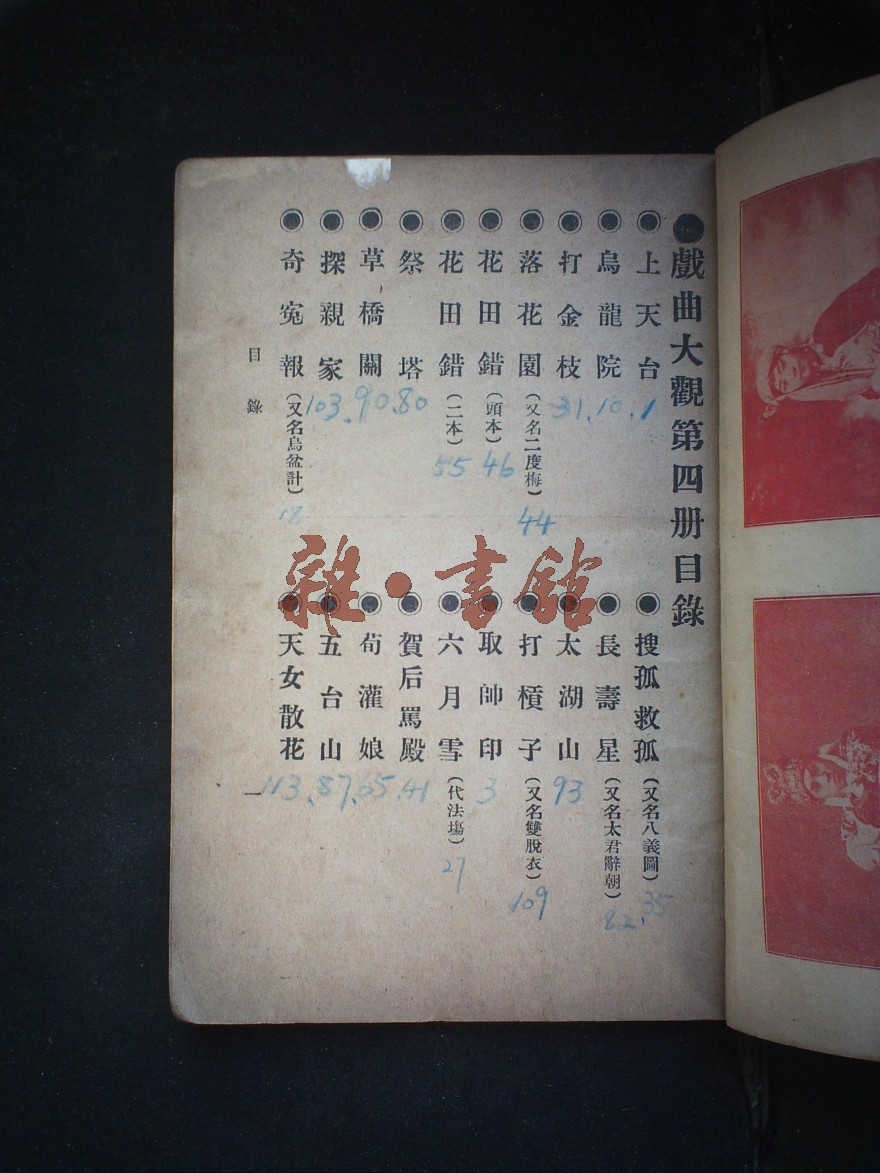 戲曲大觀第四册目錄
上天台 1
烏龍院 10.
打金枝 31.
落花園(又名二度梅) 44
花田錯(頭本) 46
花田錯(二本) 55
祭塔 80
草橋關 90.
探親家 103.
奇寃報(又名烏盆計) 18
搜孤救孤(又名八義圖) 35
長壽星(又名太君辭朝) 82.
太湖山 93
打槓子(又名雙脫衣) 109
取帥印 3
六月雪(代法塲) 27
賀后罵殿 41
荀灌娘 65.
五台山 87.
天女散花 113.
目錄
一
雜·書館